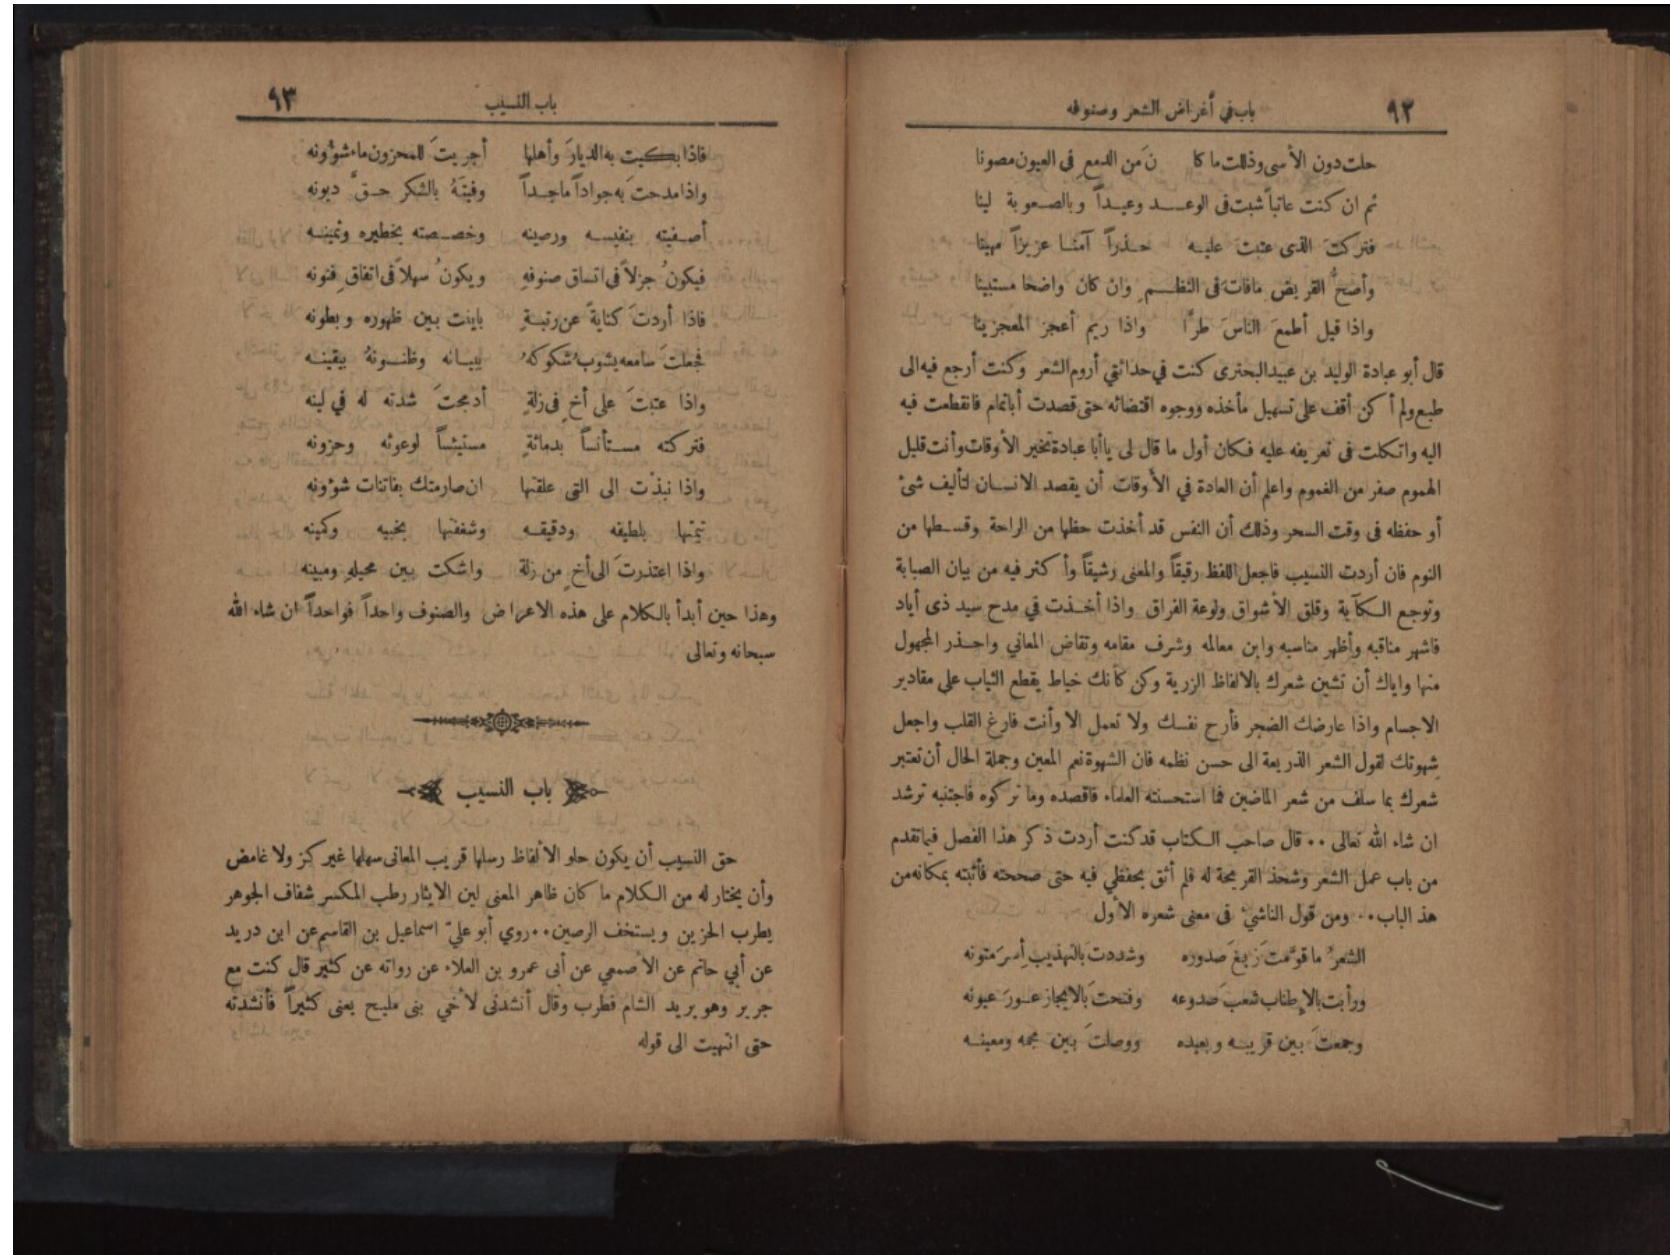 ٩٢ باب في أغراض الشعر وصنوفه
حلت دون الأسى وذللت ما كا نَ من الدمع في العيون مصونا
ثم ان كنت عاتباً شبت في الوعـــد وعيـداً وبالصعوبة لينا
فتركتَ الذى عتبت عليـه حـذراً آمنـا عزيزاً مهينا
وأصحُّ القريض مافات في النظـم وان كان واضحا مستبينا
واذا قيل أطمعَ الناسَ طرًّا واذا ريم أعجز المعجزينا
قال أبو عبادة الوليد بن عبيد البحترى كنت في حداثتي أروم الشعر وكنت أرجع فيه الى
طبع ولم أكن أقف على تسهيل مأخذه ووجوه اقتضائه حتى قصدت أباتمام فانقطعت فيه
اليه واتكلت فى تعريفه عليه فكان أول ما قال لى ياأبا عبادة تخير الأوقات وأنت قليل
الهموم صفر من الغموم واعلم أن العادة في الأوقات أن يقصد الانسان لتأليف شئ
أو حفظه فى وقت السحر وذلك أن النفس قد أخذت حظها من الراحة وقسطها من
النوم فان أردت النسيب فاجعل اللفظ رقيقاً والمعنى رشيقاً وأكثر فيه من بيان الصبابة
وتوجع الكآبة وقلق الأشواق ولوعة الفراق واذا أخـذت في مدح سيد ذى أياد
فاشهر مناقبه وأظهر مناسبه وابن معالمه وشرف مقامه وتقاض المعاني واحـذر المجهول
منها واياك أن تشين شعرك بالالفاظ الزرية وكن كأنك خياط يقطع الثياب على مقادير
الاجسام واذا عارضك الضجر فأرح نفسك ولا تعمل الا وأنت فارغ القلب واجعل
شهوتك لقول الشعر الذريعة الى حسن نظمه فان الشهوة نعم المعين وجملة الحال أن تعتبر
شعرك بما سلف من شعر الماضين فما استحسنته العلماء فاقصده وما تركوه فاجتنبه ترشد
ان شاء الله تعالى ٠٠ قال صاحب الكتاب قد كنت أردت ذكر هذا الفصل فيما تقدم
من باب عمل الشعر وشحذ القريحة له فلم أثق بحفظي فيه حتى صححته فأثبته بمكانه من
هذ الباب ٠٠ ومن قول الناشئ فى معنى شعره الأول
الشعرُ ما قوَّمتَ زيغَ صدوره وشددت بالتهذيب أسرَ متونه
ورأبت بالإطناب شعبَ صدوعه وفتحت بالايجاز عـورَ عيونه
وجمعتَ بين قريبـه وبعيده ووصلت بين مجمه ومعينـه
باب النسيب ٩٣
فاذا بكيت به الديارَ وأهلها أجريتَ للمحزون ماء شؤونه
واذا مدحتَ به جواداً ماجـداً وفيتَهُ بالشكر حـقَّ ديونه
أصـفيته بنفيسـه ورصينه وخصـصته بخطيره وثمينـه
فيكونُ جزلاً في اتساق صنوفهِ ويكونُ سهلاً فى اتفاق فنونه
فاذا أردتَ كنايةً عن رتبـةٍ باينت بين ظهوره وبطونه
فجعلتَ سامعه يشوب شكوكهُ ببيـانه وظنـونهُ بيقينـه
واذا عتبتَ على أخٍ فى زلةٍ أدمجتَ شدته له في لينه
فتركته مسـتأنساً بدماثةٍ مستيئساً لوعوثه وحزونه
واذا نبذْت الى التى علقتها ان صارمتك بفاتنات شؤونه
تيمتها بلطيفه ودقيقـه وشغفتها بخبيه وكمينه
واذا اعتذرتَ الى أخٍ من زلة واشكت بين محيله ومبينه
وهذا حين أبدأ بالكلام على هذه الاعراض والصنوف واحداً فواحداً ان شاء الله
سبحانه وتعالى
باب النسيب
حق النسيب أن يكون حلو الألفاظ رسلها قريب المعانى سهلها غير كز ولا غامض
وأن يختار له من الكلام ما كان ظاهر المعنى لين الايثار رطب المكسر شفاف الجوهر
يطرب الحزين ويستخف الرصين ٠٠ روي أبو عليّ اسماعيل بن القاسم عن ابن دريد
عن أبي حاتم عن الأصمعي عن أبى عمرو بن العلاء عن رواته عن كثير قال كنت مع
جرير وهو يريد الشام فطرب وقال أنشدنى لأخي بنى مليح يعنى كثيراً فأنشدته
حتى انتهيت الى قوله